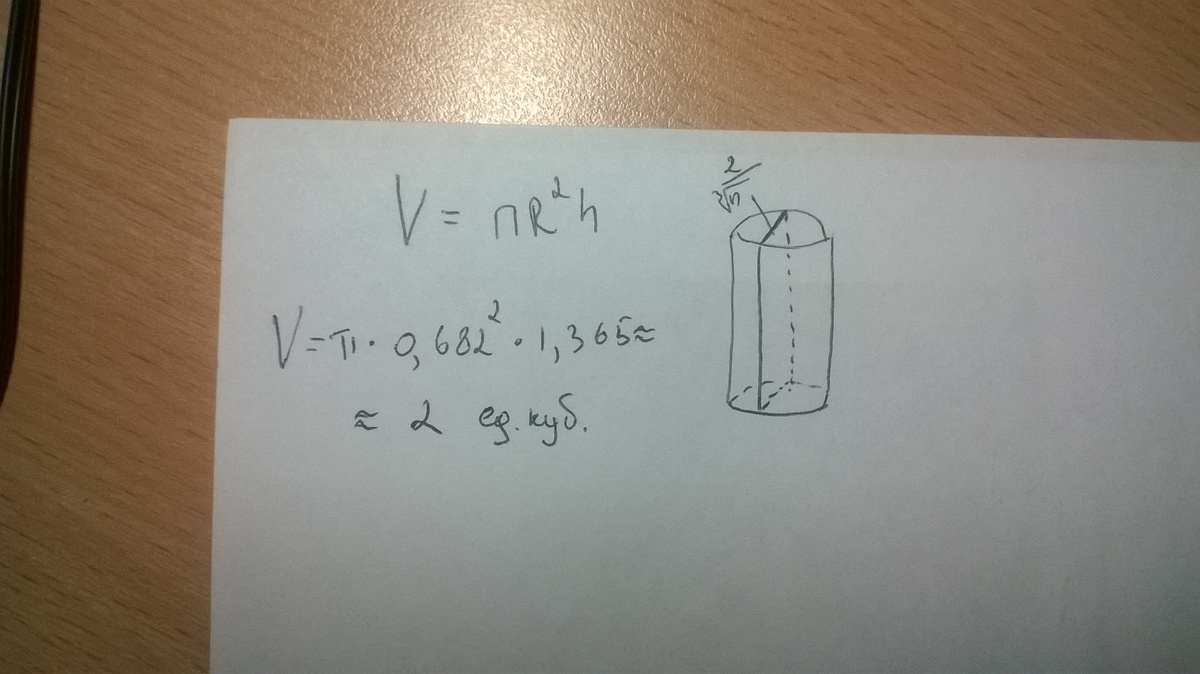 V = пR²h
V = π · 0,682² · 1,365 ≈
≈ 2 ед. куб.
2/∛п